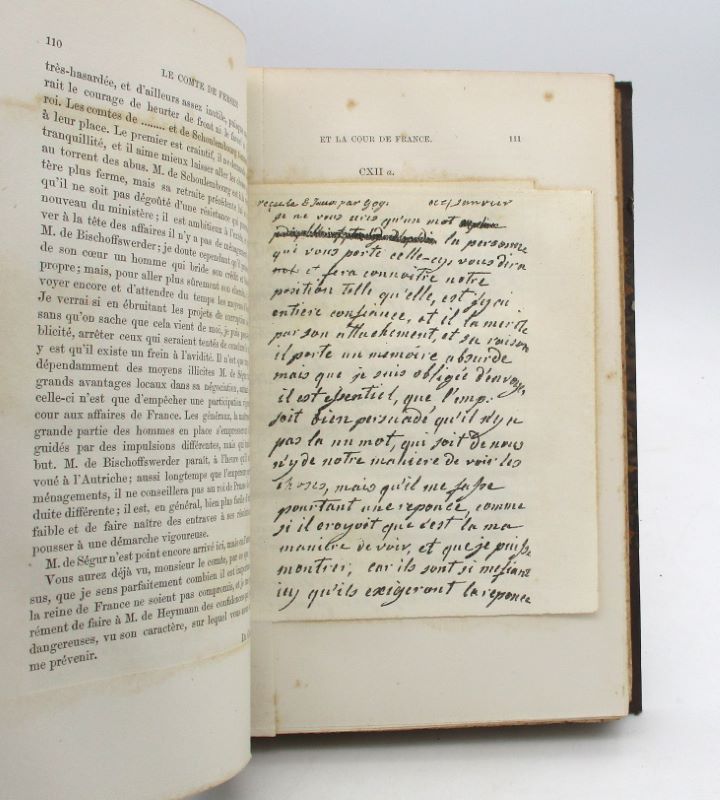 110
LE COMTE DE FERSEN
très-hasardée, et d'ailleurs assez inutile, puisque
rait le courage de heurter de front ni le favori
roi. Les comtes de ........ et de Schoulembourg
à leur place. Le premier est craintif, il ne
tranquillité, et il aime mieux laisser aller les choses
au torrent des abus. M. de Schoulembourg
tère plus ferme, mais sa retraite précédente
qu'il ne soit pas dégoûté d'une résistance qui
nouveau du ministère; il est ambitieux à l'excès,
ver à la tête des affaires il n'y a pas de ménagement
M. de Bischoffswerder; je doute cependant qu'il
de son cœur un homme qui bride son crédit et
propre; mais, pour aller plus sûrement
voyer encore et d'attendre du temps les moyens
Je verrai si en ébruitant les projets de corruption
sans qu'on sache que cela vient de moi, je puis
blicité, arrêter ceux qui seraient tentés de conduire
y est qu'il existe un frein à l'avidité. Il n'est que
dépendamment des moyens illicites M. de Ségur
grands avantages locaux dans sa négociation,
celle-ci n'est que d'empêcher une participation
cour aux affaires de France. Les généraux, la
grande partie des hommes en place s'empressent
guidés par des impulsions différentes, mais qui
but. M. de Bischoffswerder paraît, à l'heure qu'il
voué à l'Autriche; aussi longtemps que l'empereur
ménagements, il ne conseillera pas au roi de Prusse
duite différente; il est, en général, bien plus facile
faible et de faire naître des entraves à ses
pousser à une démarche vigoureuse.
M. de Ségur n'est point encore arrivé ici, mais
Vous aurez déjà vu, monsieur le comte, par
sus, que je sens parfaitement combien il est
la reine de France ne soient pas compromis, et je
rément de faire à M. de Heymann des confidences
dangereuses, vu son caractère, sur lequel vous
me prévenir.
ET LA COUR DE FRANCE. 111
CXII a.
recue le 8 Janv. par gog. ce 4 janvier
je ne vous ecris qu'un mot
la personne
qui vous porte celle-cy, vous dira
et fera connoitre notre
position telle qu'elle, est j'y ai
entiere confiance, et il la merite
par son attachement, et sa raison
il porte un memoire absurde
mais que je suis obligée d'envoyer
il est essentiel, que l'emp.
soit bien persuadé qu'il n'y a
pas la un mot, qui soit de nous
n'y de notre maniere de voir les
choses, mais qu'il me fasse
pourtant une reponce, comme
si il croyoit que c'est la ma
maniere de voir, et que je puisse
montrer, car ils sont si mefiant
icy qu'ils exigeront la reponce